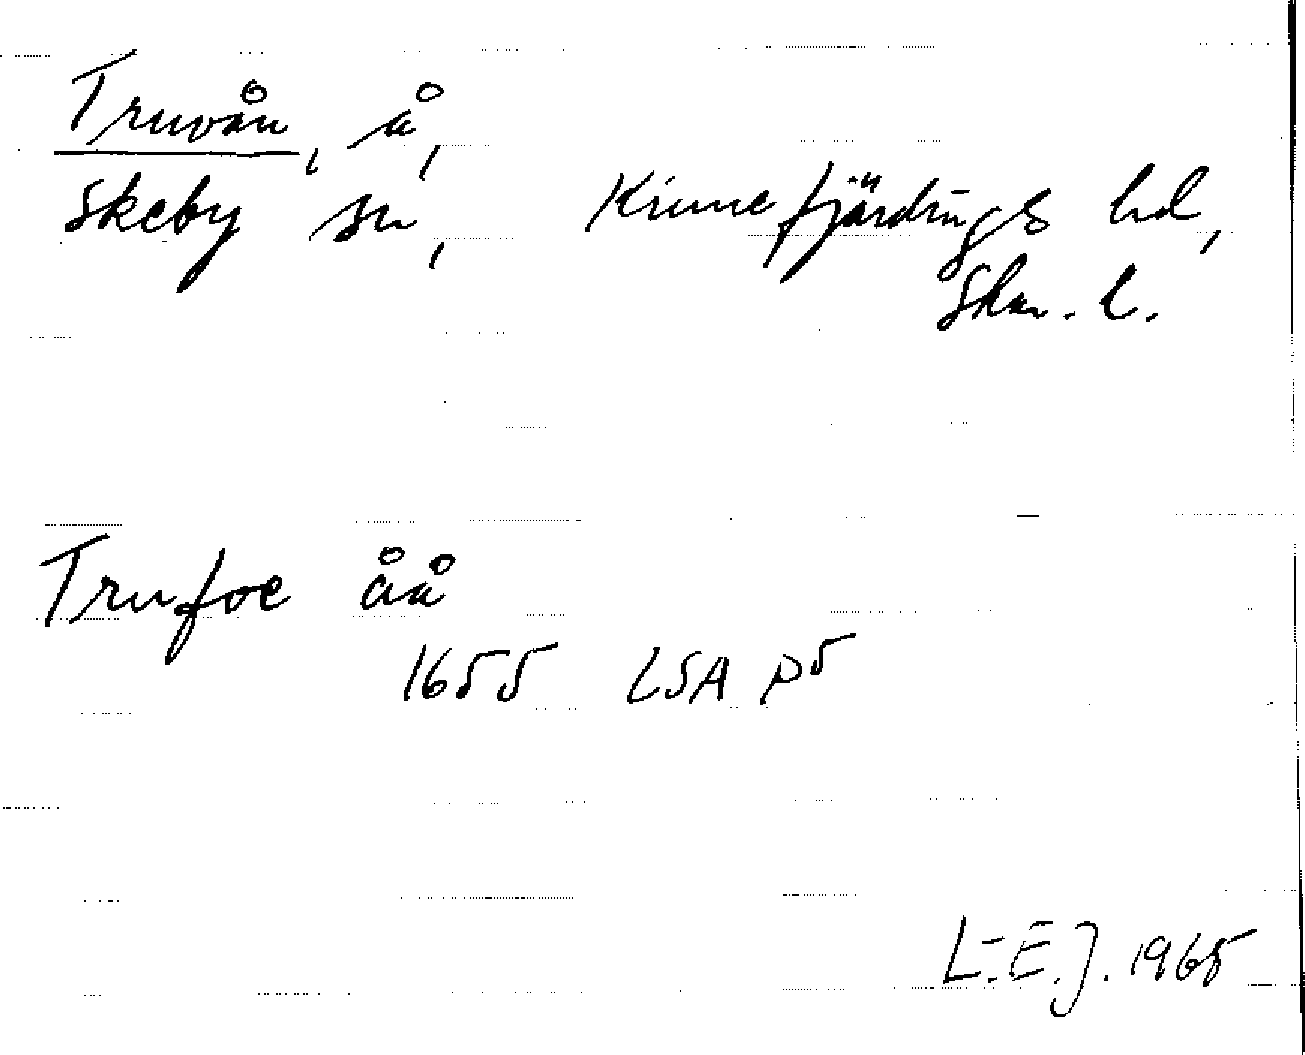 Truvån, å,
Skeby sn, Kinnefjärdings hd,
Skar. l.
Trufoe åå
1655 LSA P5
L.E.J. 1965